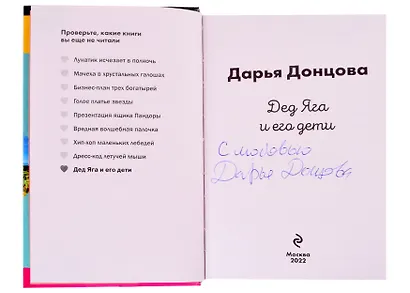 Проверьте, какие книги
вы еще не читали
Лунатик исчезает в полночь
Мачеха в хрустальных галошах
Бизнес-план трех богатырей
Голое платье звезды
Презентация ящика Пандоры
Вредная волшебная палочка
Хип-хоп маленьких лебедей
Дресс-код летучей мыши
Дед Яга и его дети
Дарья Донцова
Дед Яга
и его дети
С любовью
Дарья Донцова
Москва
2022